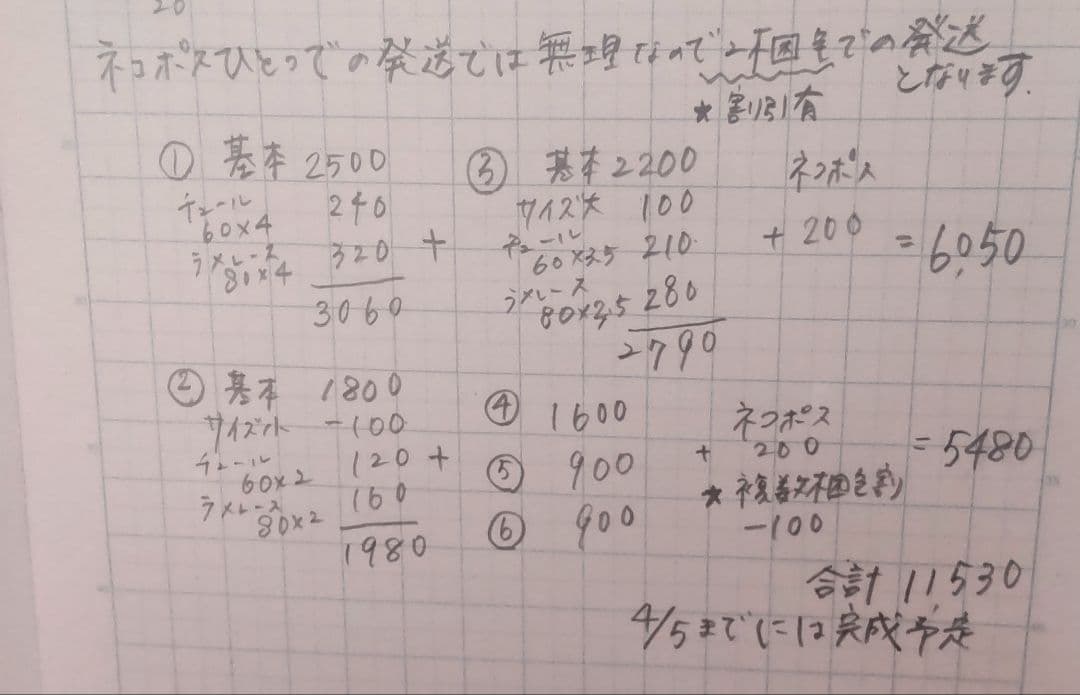 20
ネコポスひとつでの発送では無理なので2梱包での発送
となります.
★割引有
① 基本 2500
チュール
60×4 240
ラメレース
80×4 320
3060
+
③ 基本 2200
サイズ大 100
チュール
60×3.5 210
ラメレース
80×3.5 280
2790
ネコポス
+ 200 = 6,050
② 基本 1800
サイズ小 -100
チュール
60×2 120
ラメレース
80×2 160
1980
+
④ 1600
⑤ 900
⑥ 900
ネコポス
+ 200
★複数梱包割
-100
= 5480
合計 11,530
4/5までには完成予定